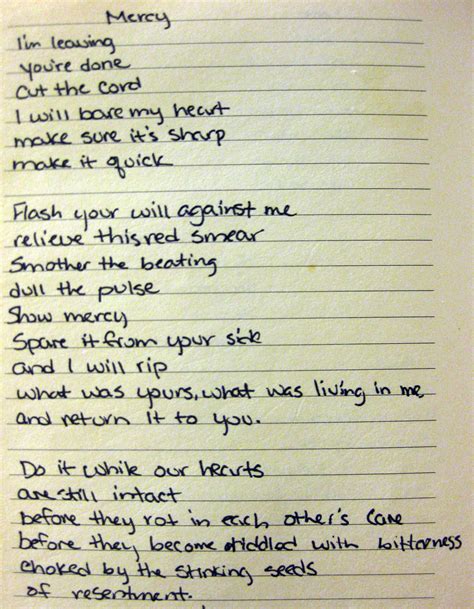 Mercy
I'm leaving
you're done
cut the cord
I will bare my heart
make sure it's sharp
make it quick
Flash your will against me
relieve this red smear
Smother the beating
dull the pulse
Show mercy
Spare it from your sick
and I will rip
what was yours, what was living in me
and return it to you.
Do it while our hearts
are still intact
before they rot in each other's care
before they become riddled with bitterness
choked by the stinking seeds
of resentment.